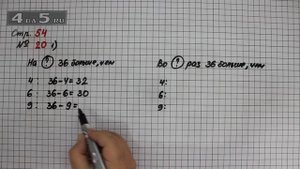 4DA5.RU
Стр. 54
№ 20 1)
На ? 36 больше, чем
4 : 36-4=32
6 : 36-6=30
9 : 36-9=
Во ? раз 36 больше, чем
4:
6:
9: